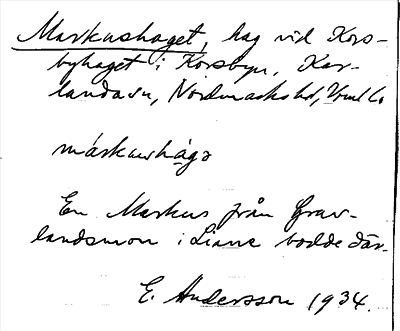 Markushaget, hag vid Kors-
byhaget i Korsbyn, Kar-
landa sn, Nordmarks hd, Vrml l.
márkushāgə
En Markus från Grav-
landsmon i Liane bodde där.
E. Andersson 1934.